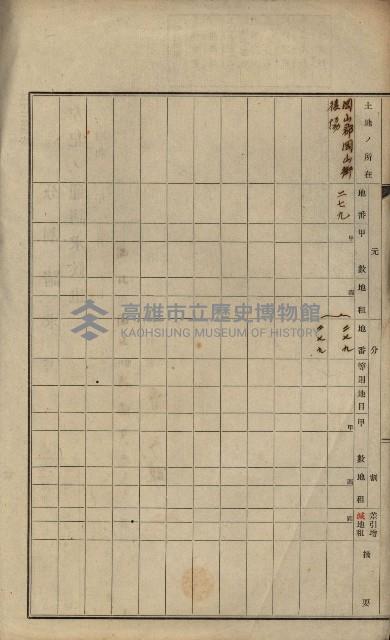 土地ノ所在
元
地番
甲數
地租
分割
地番
等則
地目
甲數
地租
差引增減地租
摘要
甲
圓
甲
圓
圓
岡山郡岡山街
後協
二七九
二七九
二七九
高雄市立歷史博物館
KAOHSIUNG MUSEUM OF HISTORY